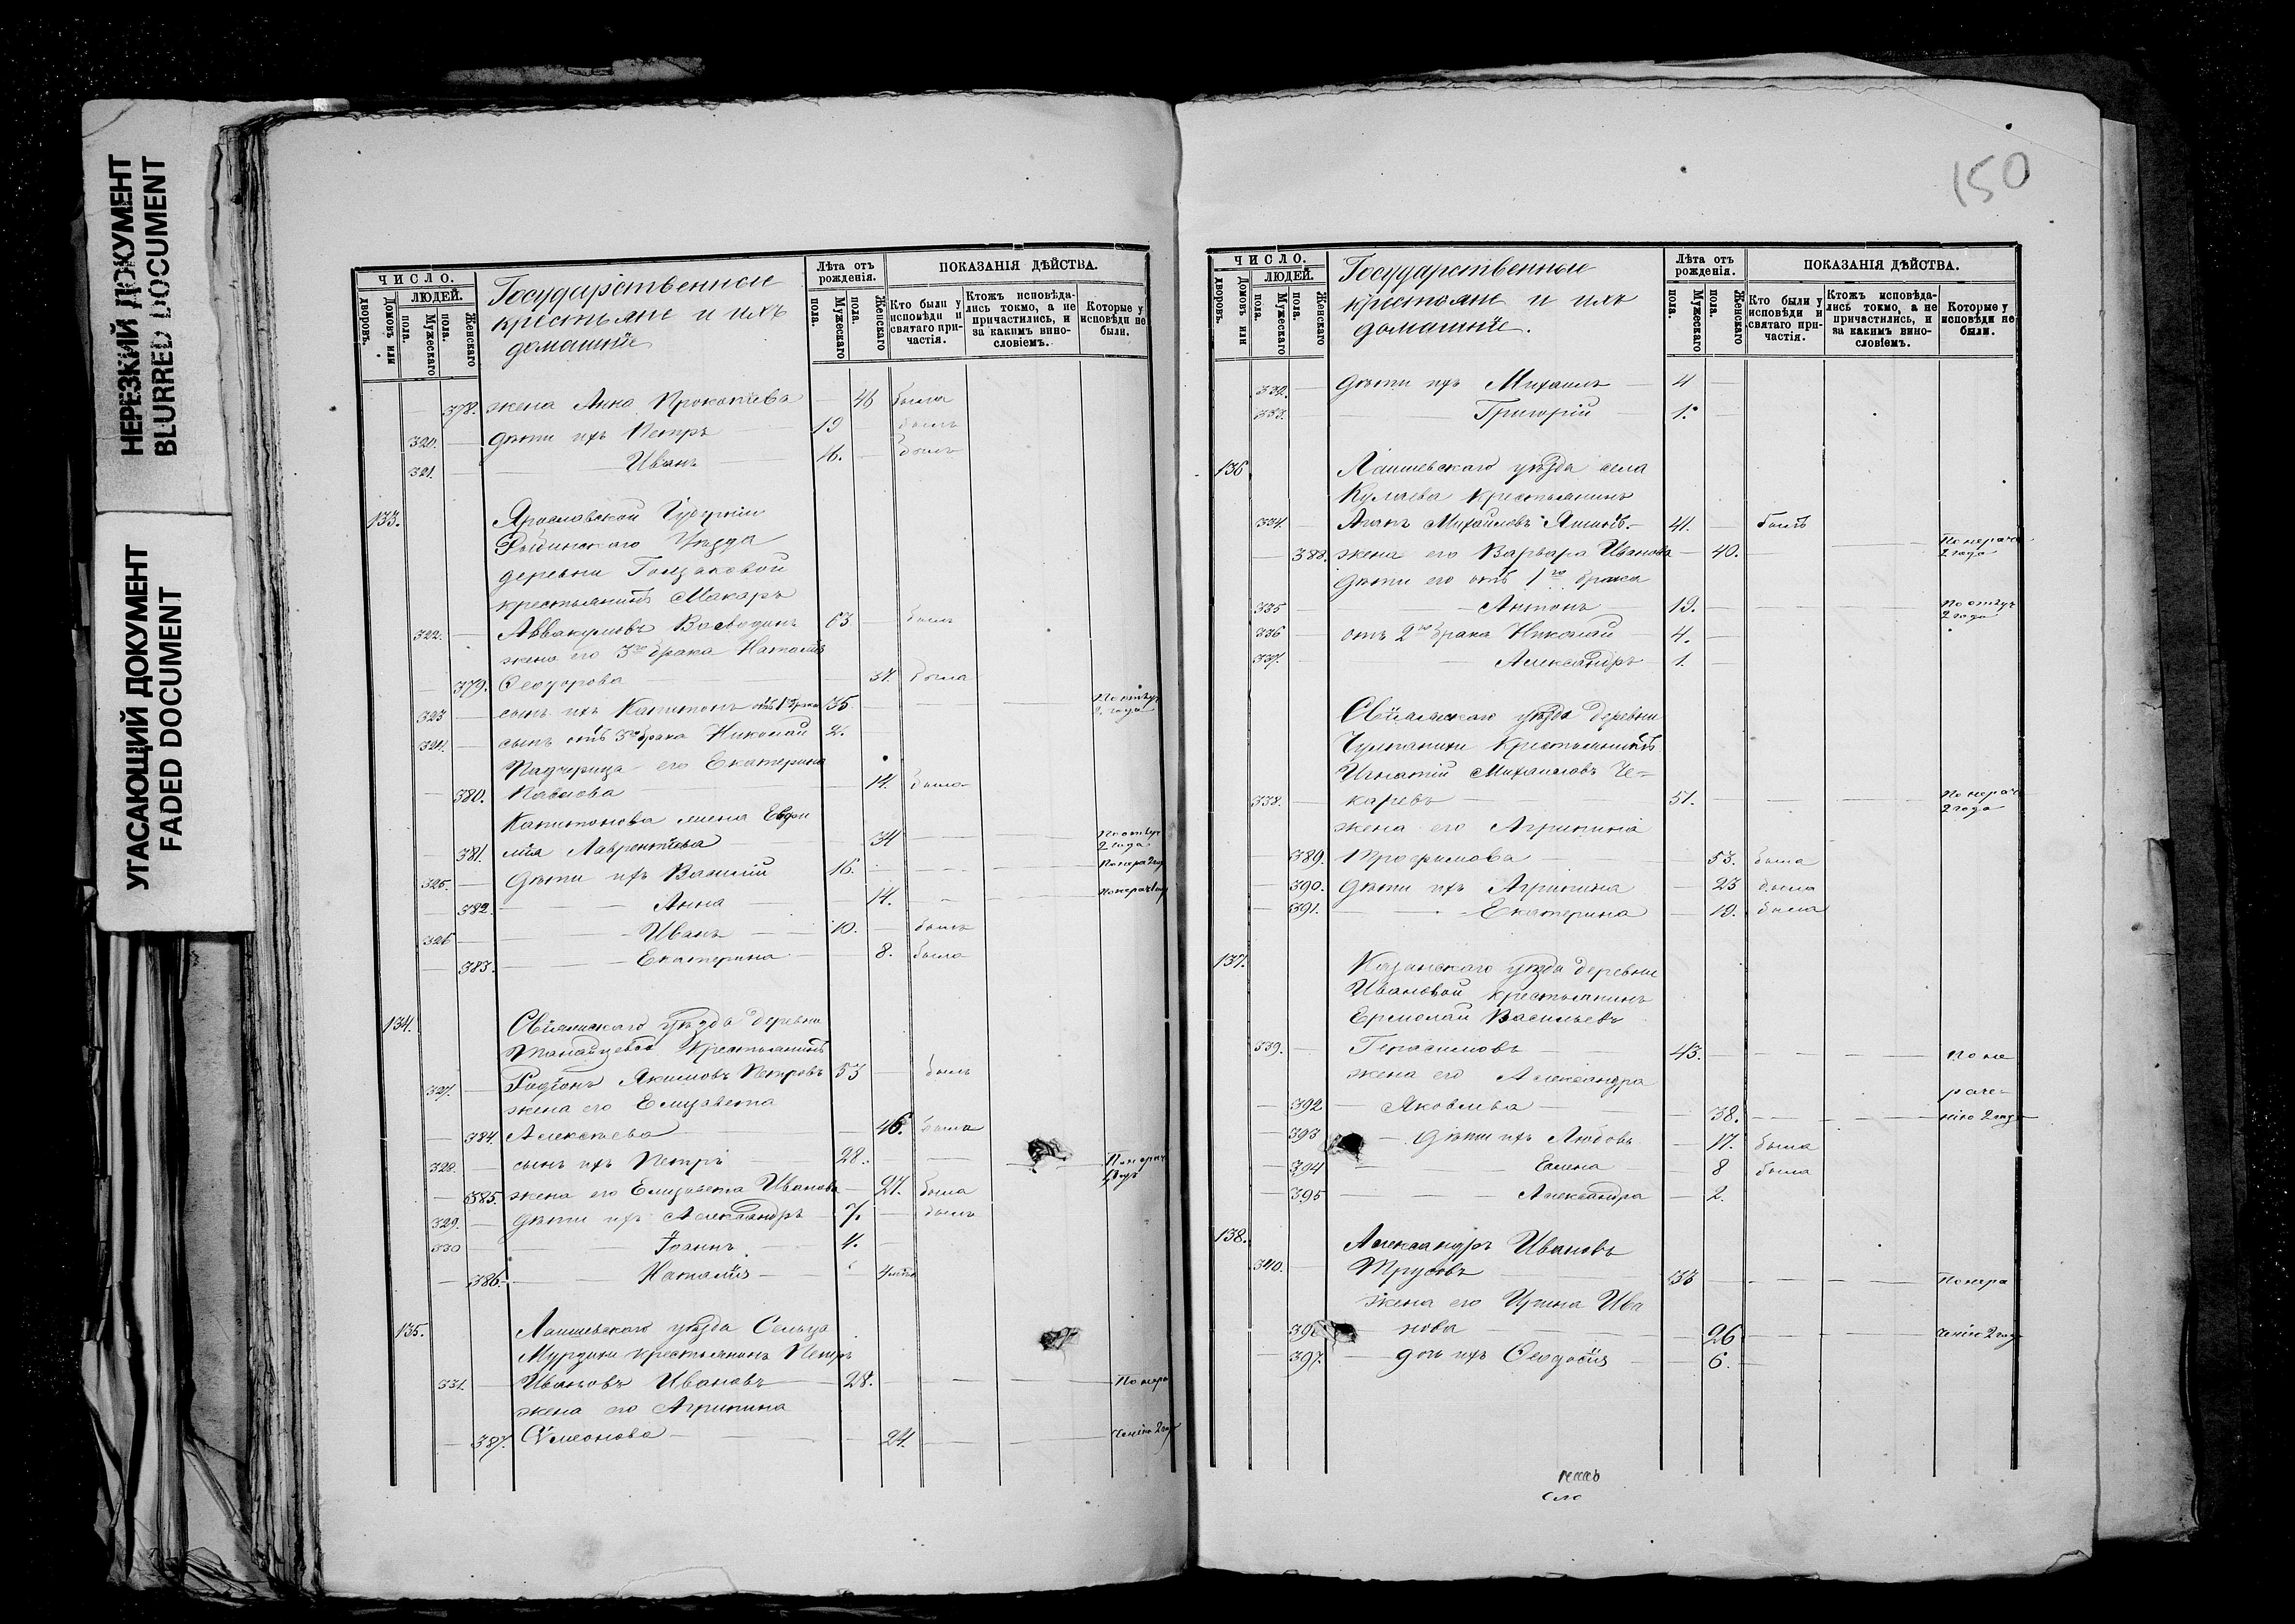 НЕРЕЗКИЙ ДОКУМЕНТ
BLURRED DOCUMENT
УГАСАЮЩИЙ ДОКУМЕНТ
FADED DOCUMENT
ЧИСЛО.
ЛЮДЕЙ.
Домовъ или дворовъ.
Мужескаго пола.
Женскаго пола.
Государственные
крестьяне и ихъ
домашніе
Лѣта отъ рожденія.
Мужескаго пола.
Женскаго пола.
ПОКАЗАНІЯ ДѢЙСТВА.
Кто были у исповѣди и святаго причастія.
Ктожъ исповѣдались токмо, а не причастились, и за какимъ винословіемъ.
Которые у исповѣди не были.
378. жена Анна Прокопіева 46 была
320. дѣти ихъ Петръ 19 былъ
321. Иванъ 16. былъ
133. Ярославской Губерніи
Рыбинскаго Уѣзда
деревни
крестьянинъ Макаръ
322. Аввакумовъ 63 былъ
жена его 3го брака Наталія
379. Ѳеодорова 37. была
323 сынъ ихъ Капитонъ отъ 1го брака 35 По отлуч 2 года
324. сынъ отъ 3го брака Николай 2.
Падчерица его Екатерина
380. Павлова 14. была
Капитонова жена Евфи
381. мія Лаврентіева 34 По отлуч 2 года
325. дѣти ихъ Василій 16. По нера 2 год
382. Анна 14. По нерач
326 Иванъ 10. былъ
383. Екатерина 8. была
134. Свіяжскаго уѣзда деревни
крестьянинъ
327. Родіонъ Якимовъ Петровъ 53 былъ
жена его Елизавета
384. Алексѣева 46. была
328. сынъ ихъ Петръ 28. По нерач
385. жена его Елизавета Иванова 27. была
329. дѣти ихъ Александръ 7. былъ
330 Іоаннъ 4.
386. Наталія
135. Лаишевскаго уѣзда Сельца
крестьянинъ Петръ
331. Ивановъ Ивановъ 28. По нера
жена его Агрипина
387. Сѵмеонова 24. ченію 2 год
150
ЧИСЛО.
ЛЮДЕЙ.
Домовъ или дворовъ.
Мужескаго пола.
Женскаго пола.
Государственные
крестьяне и ихъ
домашніе.
Лѣта отъ рожденія.
Мужескаго пола.
Женскаго пола.
ПОКАЗАНІЯ ДѢЙСТВА.
Кто были у исповѣди и святаго причастія.
Ктожъ исповѣдались токмо, а не причастились, и за какимъ винословіемъ.
Которые у исповѣди не были.
332. дѣти ихъ Михаилъ 4
333. Григорій 1.
136 Лаишевскаго уѣзда села
Кулаева крестьянинъ
334. Михаиловъ 41. былъ
388. жена его Варвара Иванова 40. По нерач 2 года
дѣти его отъ 1го брака
335 Антонъ 19. По отлуч 2 года
336 отъ 2го брака Николай 4.
337. Александръ 1.
Свіяжскаго уѣзда деревни
крестьянинъ
Игнатій Михаиловъ Че=
338. каревъ 51. По нерач 2 года
жена его Агрипина
389. Трофимова 53. была
390. дѣти ихъ Агрипина 23 была
391. Екатерина 19. была
137. Казанскаго уѣзда деревни
Ивановой крестьянинъ
Ермолай Васильевъ
339. Герасимовъ 43. По не
жена его Александра раче-
392 Яковлева 38. нію 2 год
393 дѣти ихъ Любовь 17. была
394 Елена 8 была
395 Александра 2.
138. Александръ Ивановъ
340. Трусовъ 33 По нера
жена его Ирина Ива
396 нова 26 ченію 2 год
397. дочь ихъ Ѳеодосія 6.